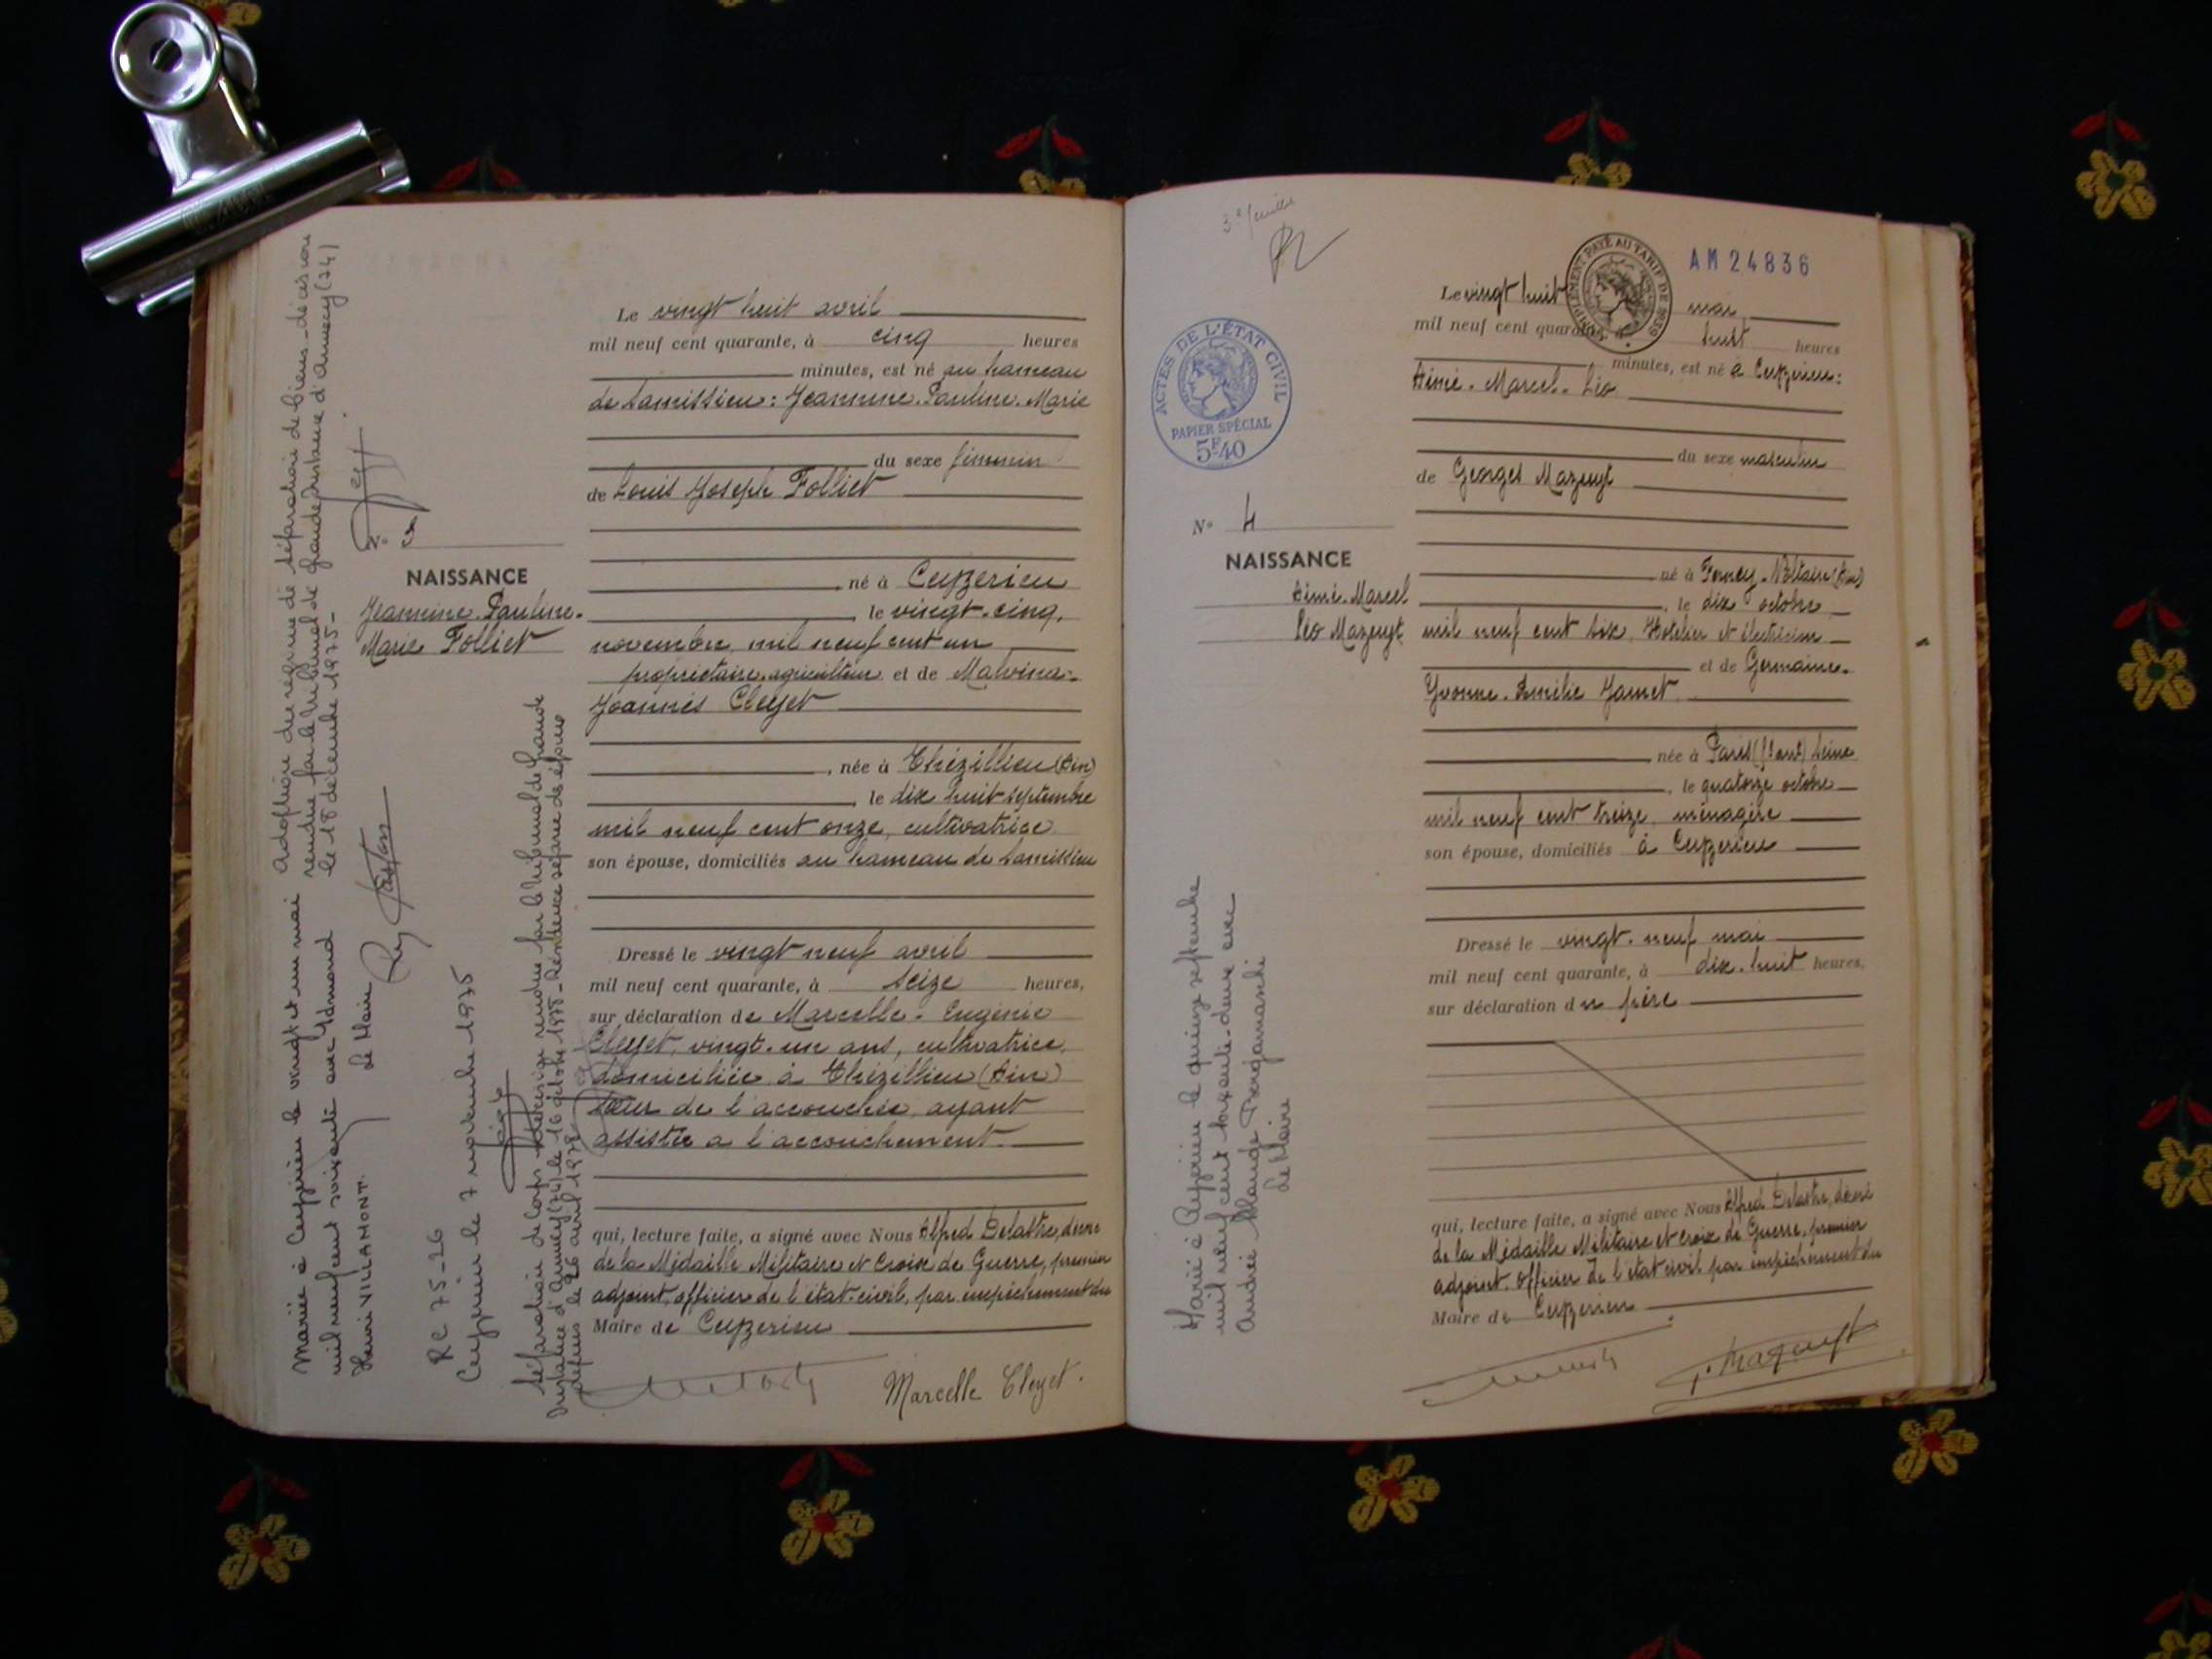 Le vingt huit avril
mil neuf cent quarante, à cinq heures
minutes, est né au hameau
de Lamissieu: Jeannine. Pauline. Marie
du sexe féminin
de Louis Joseph Folliet
né à Ceyzerieu
, le vingt-cinq,
novembre mil neuf cent un
propriétaire agriculteur et de Malvina-
Joannès Cleyet
, née à Thézillieu (Ain)
, le dix huit septembre
mil neuf cent onze, cultivatrice
son épouse, domiciliés au hameau de Lamissieu
Dressé le vingt neuf avril
mil neuf cent quarante, à seize heures,
sur déclaration de Marcelle. Eugénie
Cleyet, vingt-un ans, cultivatrice,
domiciliée à Thézillieu (Ain)
sœur de l'accouchée, ayant
assistée a l'accouchement.
qui, lecture faite, a signé avec Nous Alfred Delastre, décoré
de la Médaille Militaire et Croix de Guerre, premier
adjoint, officier de l'état-civil, par empêchement du
Maire de Ceyzerieu
Marcelle Cleyet.
N° 3
NAISSANCE
Jeannine. Pauline.
Marie Folliet
Mariée à Ceyzérieu le vingt et un mai
mil neuf cent soixante avec Edmond
Henri VILLAMONT. Le Maire
Adoption du régime de séparation de biens - décision
rendue par le tribunal de grande instance d'Annecy (74)
le 18 décembre 1975-
RC 75-26
Ceyzérieu le 7 novembre 1975
Séparation de Corps rendue par le tribunal de grande
Instance d'Annecy (74) le 16 octobre 1978 - Résidence séparée des époux
depuis le 26 avril 1978
3e feuille
ACTES DE L'ÉTAT CIVIL
PAPIER SPÉCIAL
5F40
SUPPLÉMENT PAYÉ AU TARIF DE 1939
AM 24836
Le vingt huit mai
mil neuf cent quarante, à huit heures
minutes, est né à Ceyzerieu:
Aimé. Marcel. Léo
du sexe masculin
de Georges Mazuyt
né à Ferney-Voltaire (Ain)
, le dix octobre
mil neuf cent six, Hôtelier et électricien
et de Germaine.
Yvonne. Amélie Jamet
née à Paris Seine
, le quatorze octobre
mil neuf cent treize, ménagère
son épouse, domiciliés à Ceyzerieu
Dressé le vingt-neuf mai
mil neuf cent quarante, à dix-huit heures,
sur déclaration du père
qui, lecture faite, a signé avec Nous Alfred Delastre, décoré
de la Médaille Militaire et croix de Guerre, premier
adjoint. officier de l'état civil par empêchement du
Maire de Ceyzerieu
G. Mazuyt
N° 4
NAISSANCE
Aimé. Marcel
Léo Mazuyt
Marié à Ceyzérieu le quinze septembre
mil neuf cent soixante-deux avec
Andrée Claude Bergamaschi
Le Maire